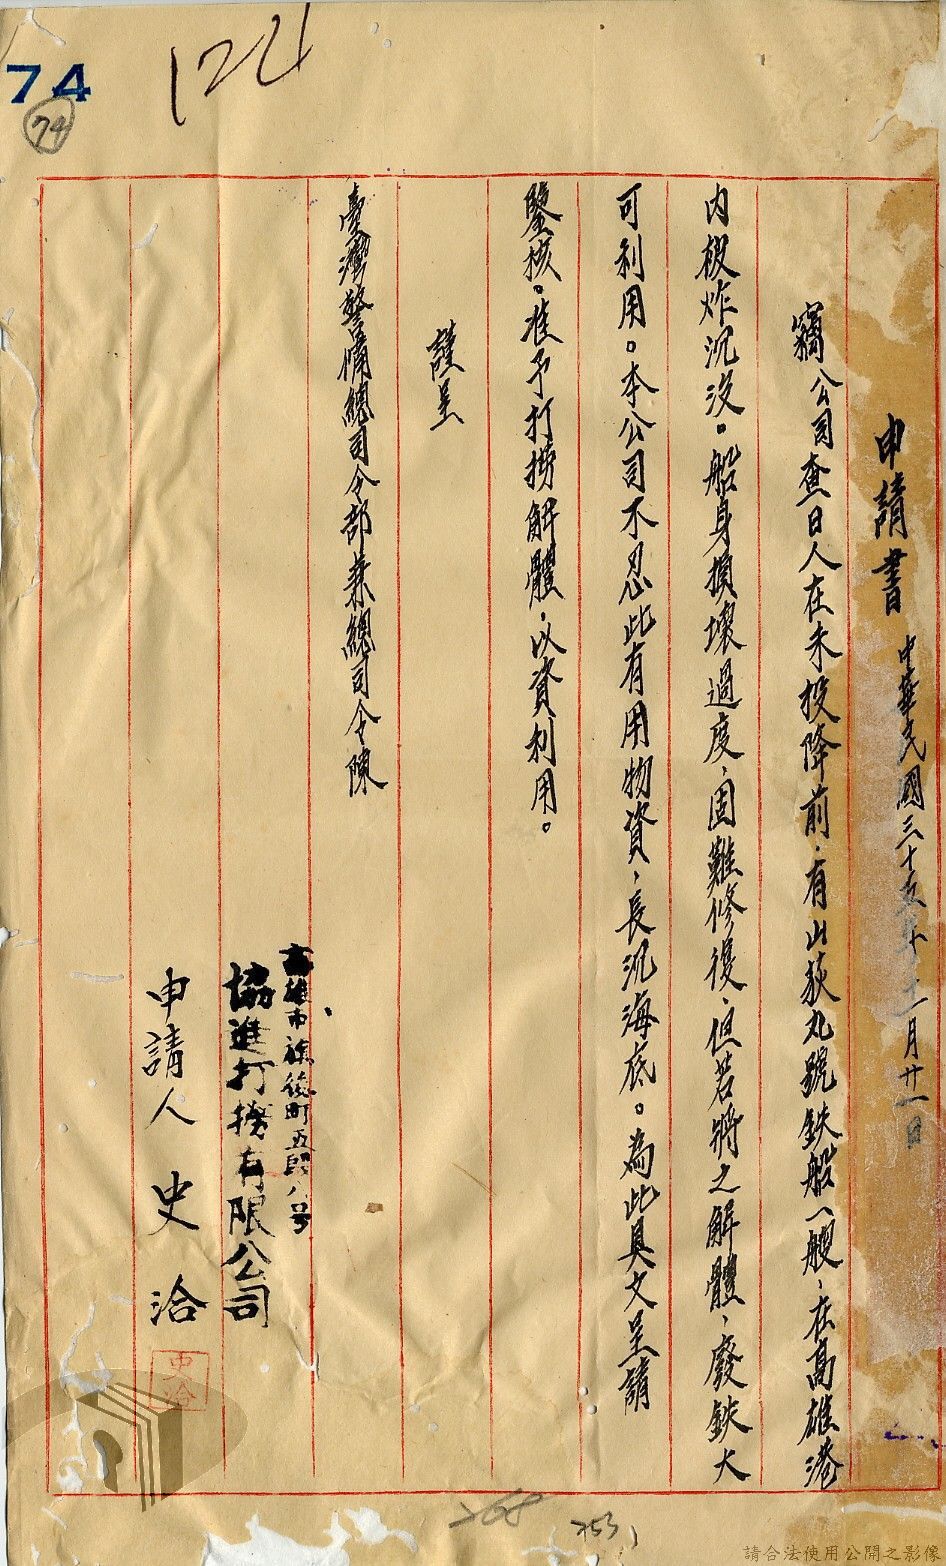 74
74
申請書
中華民國三十五年十一月廿一日
竊公司查日人在未投降前，有山荻丸號鉄船一艘，在高雄港
內被炸沉没。船身損壞過度，固難修復，但若將之解體，廢鉄大
可利用。本公司不忍此有用物資，長沉海底。為此具文呈請
鑒核。准予打撈解體，以資利用。
謹呈
臺灣警備總司令部兼總司令陳
高雄市旗後町五段八号
協進打撈有限公司
申請人 史洽
史洽
268
253
請合法使用公開之影像